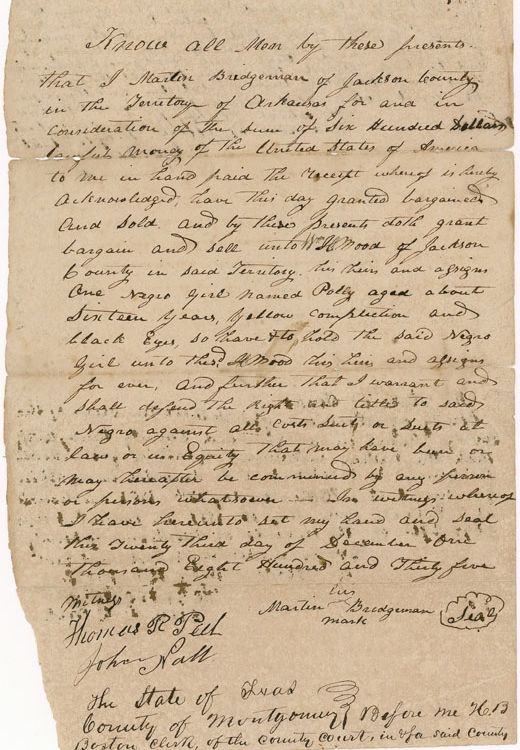 Know all Men by these presents
that I Martin Bridgeman of Jackson County
in the Territory of Arkansas for and in
Consideration of the sum of Six Hundred Dollars
lawful money of the United States of America
to me in hand paid the receipt whereof is hereby
acknowledged, have this day granted bargained
And Sold and by these presents doth grant
bargain and sell unto Wm H Wood of Jackson
County in said Territory his heirs and assigns
One Negro Girl Named Polly aged about
Sixteen Years, Yellow complection and
black Eyes, so have & to hold the said Negro
Girl unto the sd H Wood his heirs and assigns
for ever, and further that I warrant and
shall defend the Right and title to said
Negro against all costs suits or suits at
law or in Equity that may have been or
may hereafter be commenced by any person
or persons whatsoever In witness whereof
I have hereunto set my hand and seal
this Twenty third day of December One
thousand Eight Hundred and Thirty five
Witness
his
Martin Bridgeman Seal
mark
Thomas R
John Nall
The State of Texas
County of Montgomery Before me H B
Boston Clerk, of the County Court, in & for said County